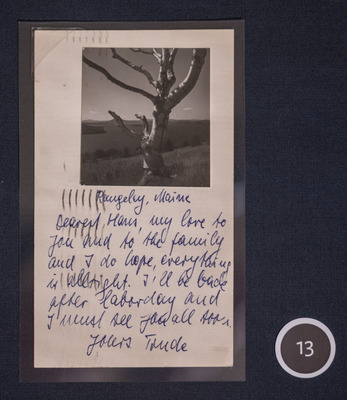 Rangeley, Maine
Dearest Hans, my love to
you and to the family
and I do hope, everything
is allright. I'll be back
after Laborday and
I must see you all soon.
Yours Trude
13